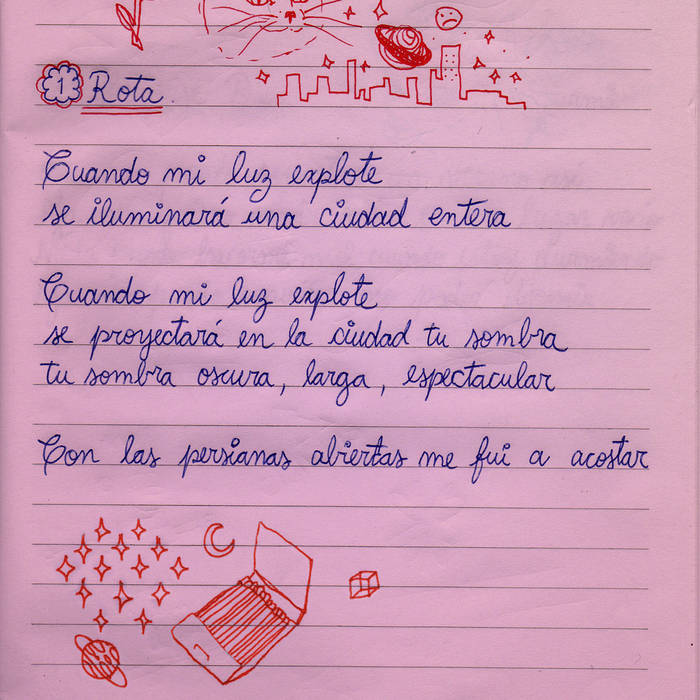 1 Rota.
Cuando mi luz explote
se iluminará una ciudad entera
Cuando mi luz explote
se proyectará en la ciudad tu sombra
tu sombra oscura, larga, espectacular
Con las persianas abiertas me fui a acostar